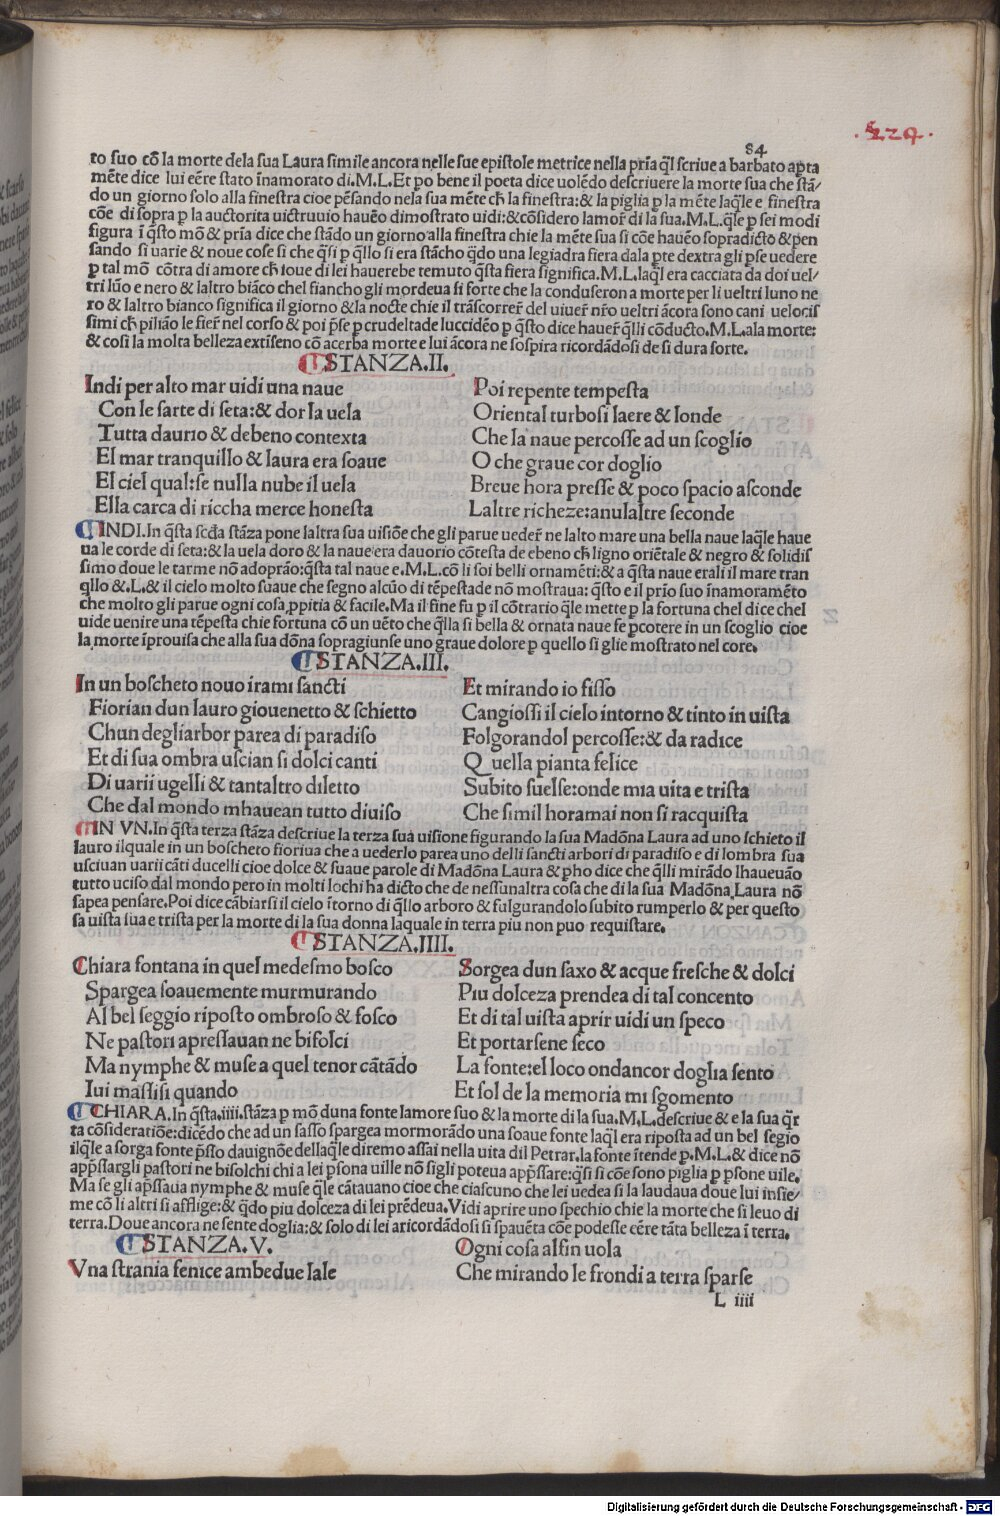 .224.
84
to suo cō la morte dela sua Laura simile ancora nelle sue epistole metrice nella pria q̄l scriue a barbato aꝑta
mēte dice lui eēre stato īnamorato di.M.L.Et ꝑo bene il poeta dice uolēdo descriuere la morte sua che stā/
do un giorno solo alla finestra cioe pēsando nela sua mēte ch̄ la finestra:& la piglia ꝑ la mēte laq̄le e finestra
cōe di sopra ꝑ la auctorita uictruuio hauēo dimostrato uidi:&cōsidero lamor̄ di la sua.M.L.q̄le ꝑ sei modi
figura ī q̄sto mō & pria dice che stādo un giorno alla finestra chie la mēte sua si cōe hauēo sopradicto & pen
sando si uarie & noue cose si che q̄si ꝑ q̄llo si era stācho q̄do una legiadra fiera dala ꝑte dextra gli ꝑse uedere
ꝑ tal mō cōtra di amore ch̄ Ioue di lei hauerebe temuto q̄sta fiera significa.M.L.laq̄l era cacciata da doi uel/
tri lūo e nero & laltro biāco chel fiancho gli mordeua si forte che la conduseron a morte per li ueltri luno ne
ro & laltro bianco significa il giorno &la nocte chie il trāscorrer̄ del uiuer̄ nr̄o ueltri ācora sono cani uelocis
simi ch̄ piliāo le fier̄ nel corso & poi ꝑse ꝑ crudeltade luccidēo ꝑ q̄sto dice hauer̄ q̄lli cōducto.M.L.ala morte:
& cosi la molta belleza extiseno cō acerba morte e lui ācora ne sospira ricordādosi de si dura sorte.
STANZA.II.
Indi per alto mar uidi una naue
Con le sarte di seta:& dor la uela
Tutta daurio & debeno contexta
El mar tranquillo & laura era soaue
El ciel qual:se nulla nube il uela
Ella carca di riccha merce honesta
Poi repente tempesta
Oriental turbosi laere & londe
Che la naue percosse ad un scoglio
O che graue cor doglio
Breue hora presse & poco spacio asconde
Laltre richeze:anulaltre seconde
INDI.In q̄sta scd̄a stāza pone laltra sua uisiōe che gli parue ueder̄ ne lalto mare una bella naue laq̄le haue
ua le corde di seta:& la uela doro & la naue era dauorio cōtesta de ebeno ch̄ ligno oriētale & negro & solidis
simo doue le tarme nō adoprāo:q̄sta tal naue e.M.L.cō li soi belli ornamēti:& a q̄sta naue erali il mare tran
q̄llo &.L.& il cielo molto suaue che segno alcūo di tēpestade nō mostraua: q̄sto e il prio suo īnamoramēto
che molto gli parue ogni cosa ꝓpitia & facile.Ma il fine fu ꝑ il cōtrario q̄le mette ꝑ la fortuna chel dice chel
uide uenire una tēpesta chie fortuna cō un uēto che q̄lla si bella & ornata naue fe ꝑcotere in un scoglio cioe
la morte īprouisa che alla sua dōna sopragiunse uno graue dolore ꝑ quello si glie mostrato nel core.
STANZA.III.
In un boscheto nouo irami sancti
Fiorian dun lauro giouenetto & schietto
Chun degliarbor parea di paradiso
Et di sua ombra uscian si dolci canti
Di uarii ugelli & tantaltro diletto
Che dal mondo mhauean tutto diuiso
Et mirando io fisso
Cangiossi il cielo intorno & tinto in uista
Folgorandol percosse:& da radice
Quella pianta felice
Subito suelse:onde mia uita e trista
Che simil horamai non si racquista
IN VN.In q̄sta terza stāza descriue la terza sua uisione figurando la sua Madōna Laura ad uno schieto il
lauro ilquale in un boscheto fioriua che a uederlo parea uno delli sancti arbori di paradiso e di lombra sua
usciuan uarii cāti ducelli cioe dolce & suaue parole di Madōna Laura & ꝑho dice che q̄lli mirādo lhaueuāo
tutto uciso dal mondo pero in molti lochi ha dicto che de nessunaltra cosa che di la sua Madōna Laura nō
sapea pensare.Poi dice cābiarsi il cielo ītorno di q̄llo arboro & fulgurandolo subito rumperlo & per questo
sa uista sua e trista per la morte di la sua donna laquale in terra piu non puo requistare.
STANZA.IIII.
Chiara fontana in quel medesmo bosco
Spargea soauemente murmurando
Al bel seggio riposto ombroso & fosco
Ne pastori apressauan ne bifolci
Ma nymphe & muse a quel tenor cātādo
Iui massisi quando
Sorgea dun saxo & acque fresche & dolci
Piu dolceza prendea di tal concento
Et di tal uista aprir uidi un speco
Et portarsene seco
La fonte:el loco ondancor doglia sento
Et sol de la memoria mi sgomento
CHIARA.In q̄sta.iiii.stāza ꝑ mō duna fonte lamore suo & la morte di la sua.M.L.descriue & e la sua q̄r
ta cōsideratiōe:dicēdo che ad un sasso spargea mormorādo una soaue fonte laq̄l era riposta ad un bel segio
ilq̄le a sorga fonte ꝑsso dauignōe dellaq̄le diremo assai nella uita dil Petrar.la fonte ītende ꝑ.M.L.& dice nō
apꝑssargli pastori ne bisolchi chi a lei ꝑsona uille nō sigli poteua apꝑssare:q̄si si cōe sono piglia ꝑ ꝑsone uile.
Ma se gli apꝑssaua nymphe & muse q̄le cātauano cioe che ciascuno che lei uedea si la laudaua doue lui insie/
me cō li altri si afflige:& q̄do piu dolceza di lei prēdeua.Vidi aprire uno spechio chie la morte che si leuo di
terra.Doue ancora ne sente doglia:& solo di lei aricordādosi si spauēta cōe podesse cēre tāta belleza ī terra.
STANZA.V.
Vna strania fenice ambedue lale
Ogni cosa alfin uola
Che mirando le frondi a terra sparse
L iiii
Digitalisierung gefördert durch die Deutsche Forschungsgemeinschaft - DFG